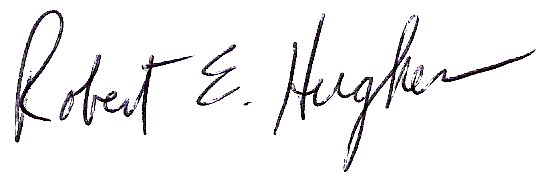 Robert E. Hughes